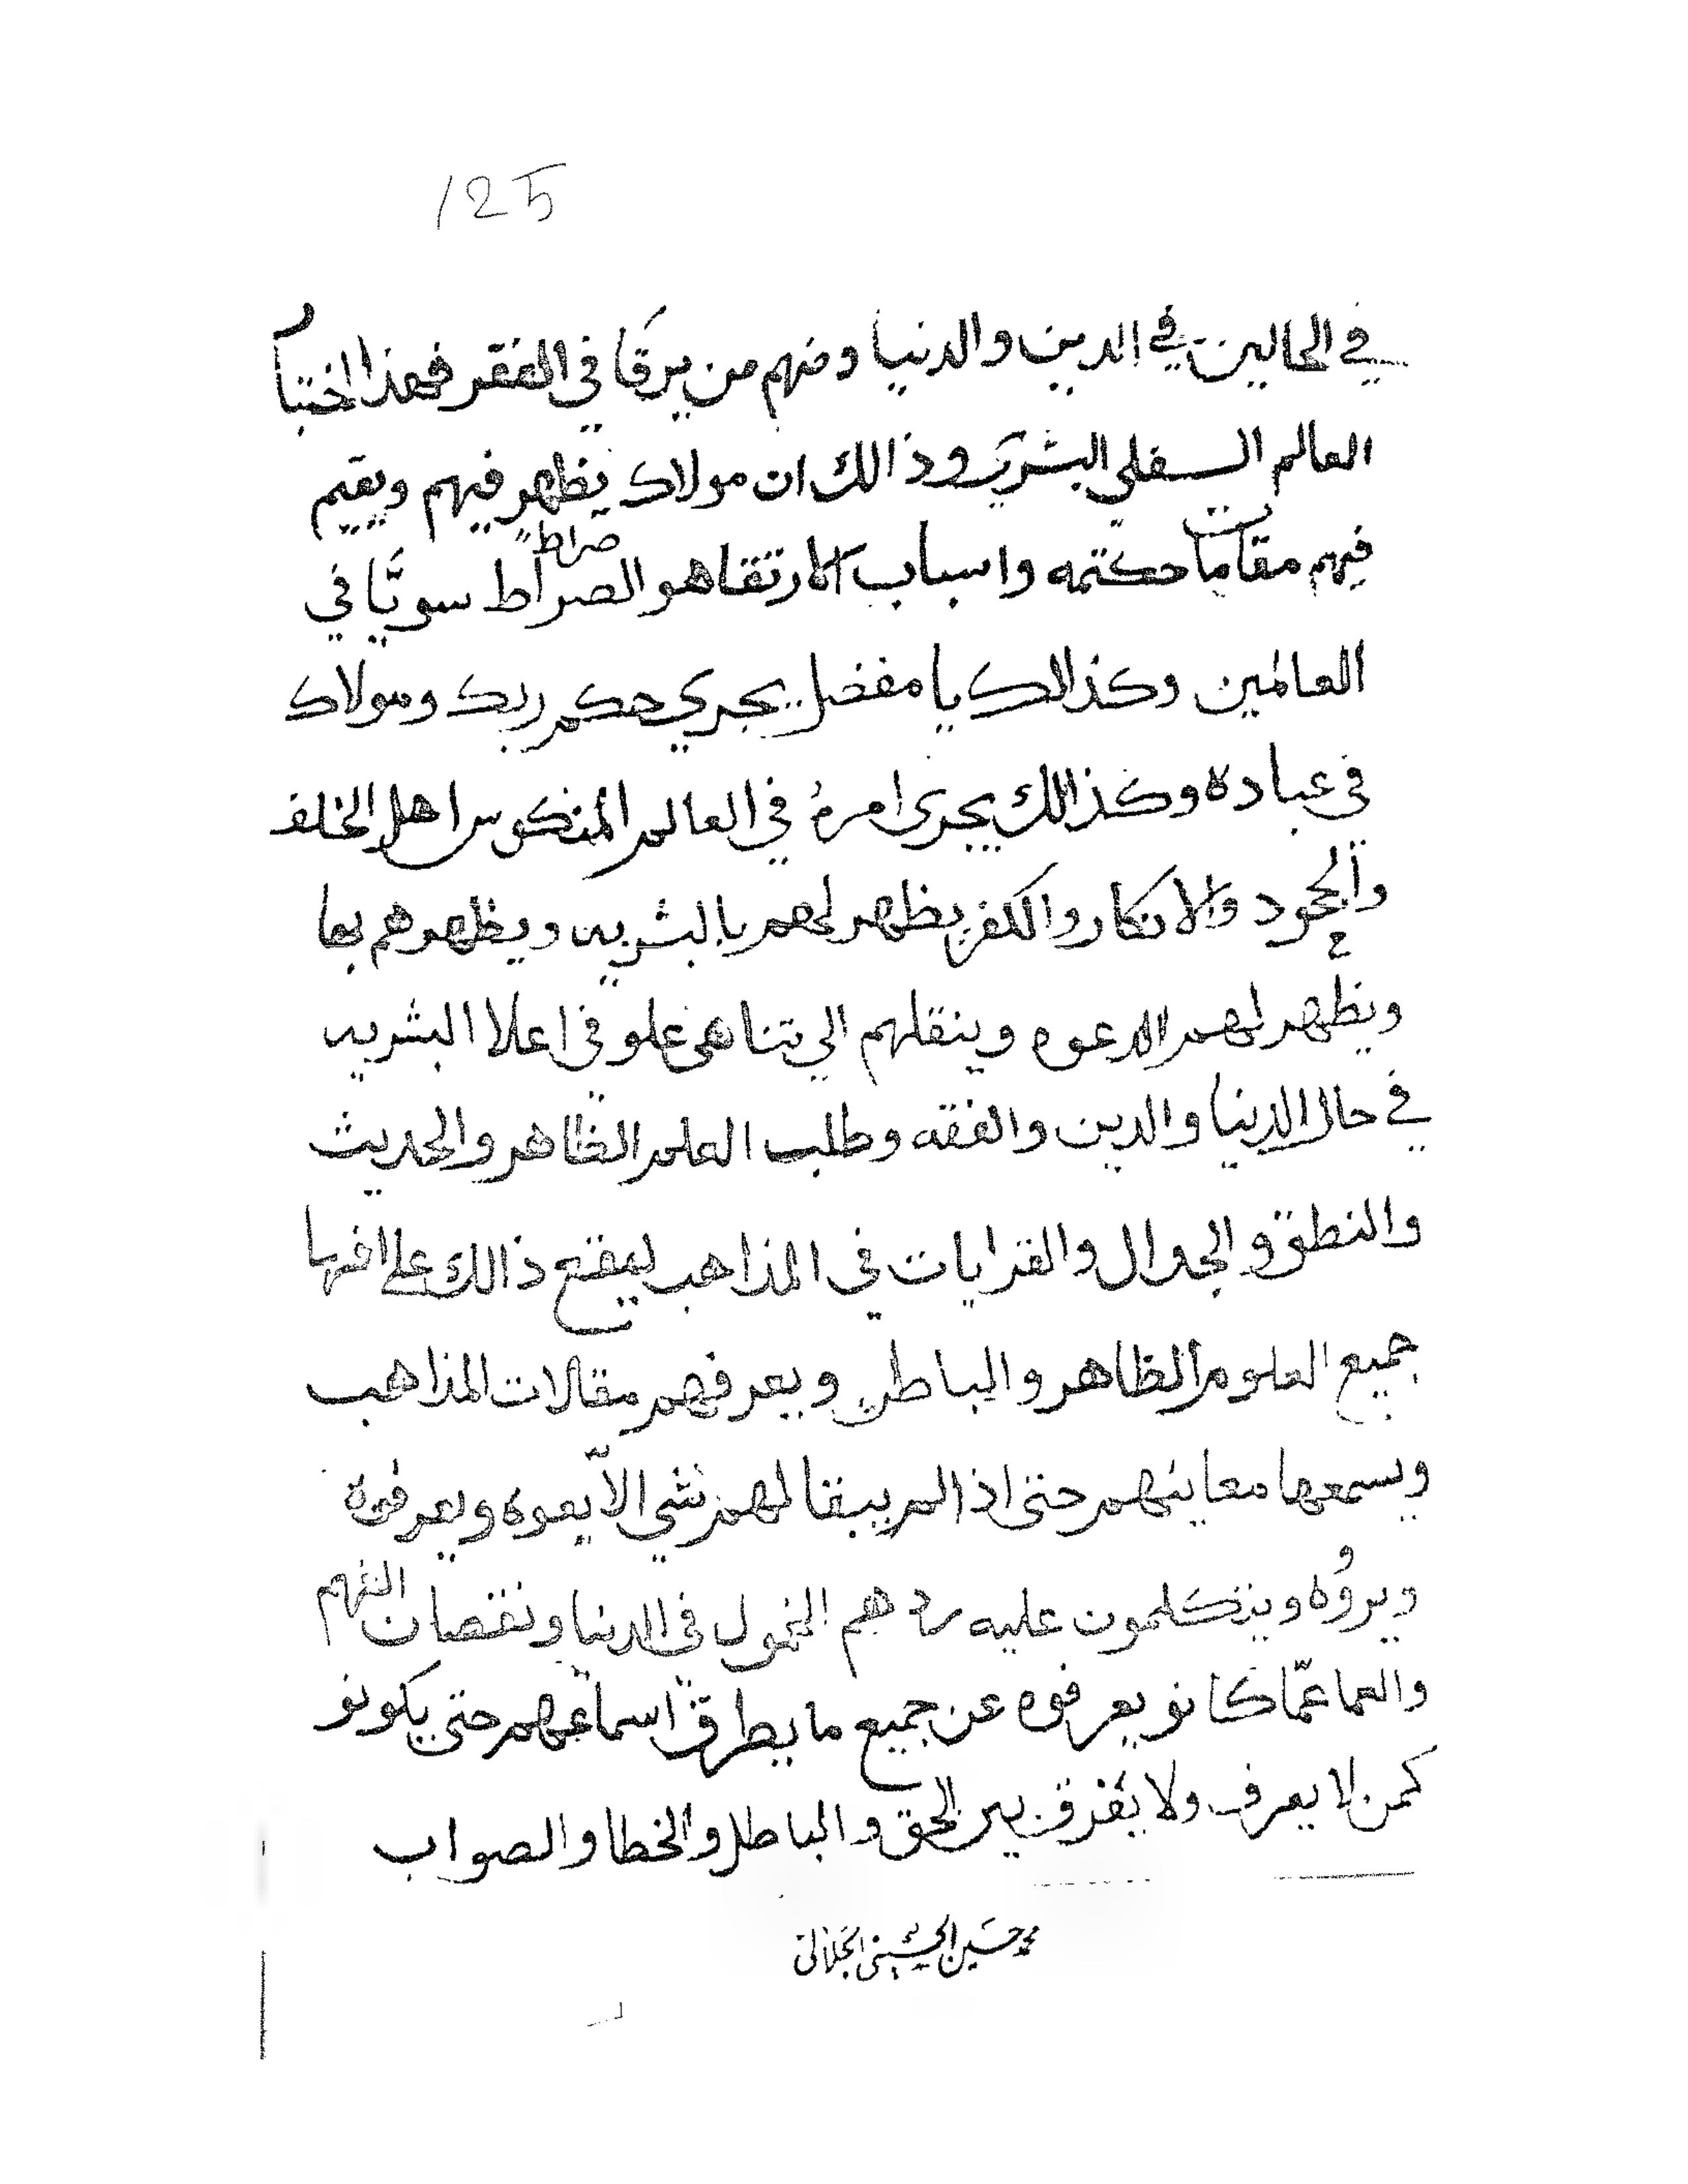 125
في الحالين في الدين والدنيا ومنهم من يرقا في الفقر فهذا اختبار
العالم السفلي البشري وذالك ان مولاك يظهر فيهم ويقيم
فيهم مقامات حكمته واسباب الارتقا هو الصراط صراط سويّا في
العالمين وكذالك يا مفضل يجري حكم ربك ومولاك
في عباده وكذالك يجرى امره في العالم المنكوس اهل الخلف
والجحود والانكار والكفر يظهر لهم بالبشريه ويظهرهم بها
ويظهر لهم الدعوه وينقلهم الي تناهى علو في اعلا البشريه
في حال الدنيا والدين والفقه وطلب العلم الظاهر والحديث
والنطق والجدال والقرايات في المذاهب ليقع ذالك على افها
جميع العلوم الظاهر والباطن ويعرفهم مقالات المذاهب
ويسمعها معاينهم حتى اذا لم يبقا لهم شي الّا يعوه ويعرفوه
ويروُوه ويتكلمون عليه ردهم الخمول في الدنيا ونقصان الفهم
والعما عمّا كانو يعرفوه عن جميع ما يطرق اسماعهم حتى يكونو
كمن لا يعرف ولا يفرق بين الحق والباطل والخطا والصواب
محمد حسين الحسيني الجلالي